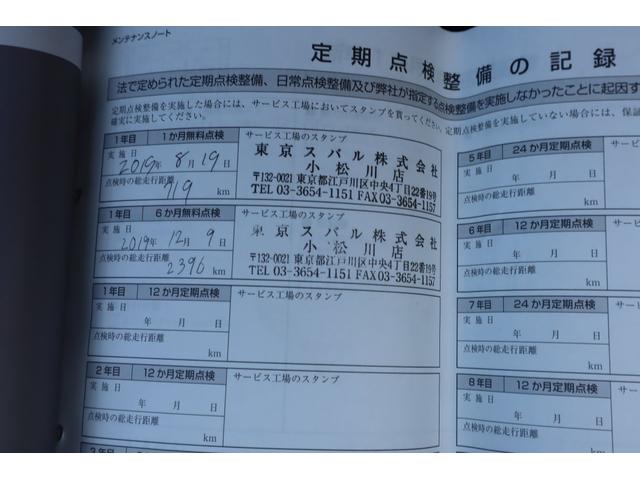 メンテナンスノート
定期点検整備の記録
法で定められた定期点検整備、日常点検整備及び弊社が指定する点検整備を実施しなかったことに起因す
定期点検整備を実施した場合には、サービス工場においてスタンプを貰ってください。定期点検整備を実施していない場合には、保証
確実に実施してください。
1年目 1か月無料点検 サービス工場のスタンプ
実施日
2019年 8月 19日
点検時の総走行距離
719 km
東京スバル株式会社
小松川店
〒132-0021 東京都江戸川区中央4丁目22番19号
TEL 03-3654-1151 FAX 03-3654-1157
1年目 6か月無料点検 サービス工場のスタンプ
実施日
2019年 12月 9日
点検時の総走行距離
2396 km
東京スバル株式会社
小松川店
〒132-0021 東京都江戸川区中央4丁目22番19号
TEL 03-3654-1151 FAX 03-3654-1157
1年目 12か月定期点検 サービス工場のスタンプ
実施日
年 月 日
点検時の総走行距離
km
2年目 12か月定期点検 サービス工場のスタンプ
実施日
年 月 日
点検時の総走行距離
km
5年目 24か月定期点検 サービ
実施日
年 月 日
点検時の総走行距離
km
6年目 12か月定期点検 サービス
実施日
年 月 日
点検時の総走行距離
km
7年目 24か月定期点検 サービス
実施日
年 月 日
点検時の総走行距離
km
8年目 12か月定期点検 サービス
実施日
年 月 日
点検時の総走行距離
km